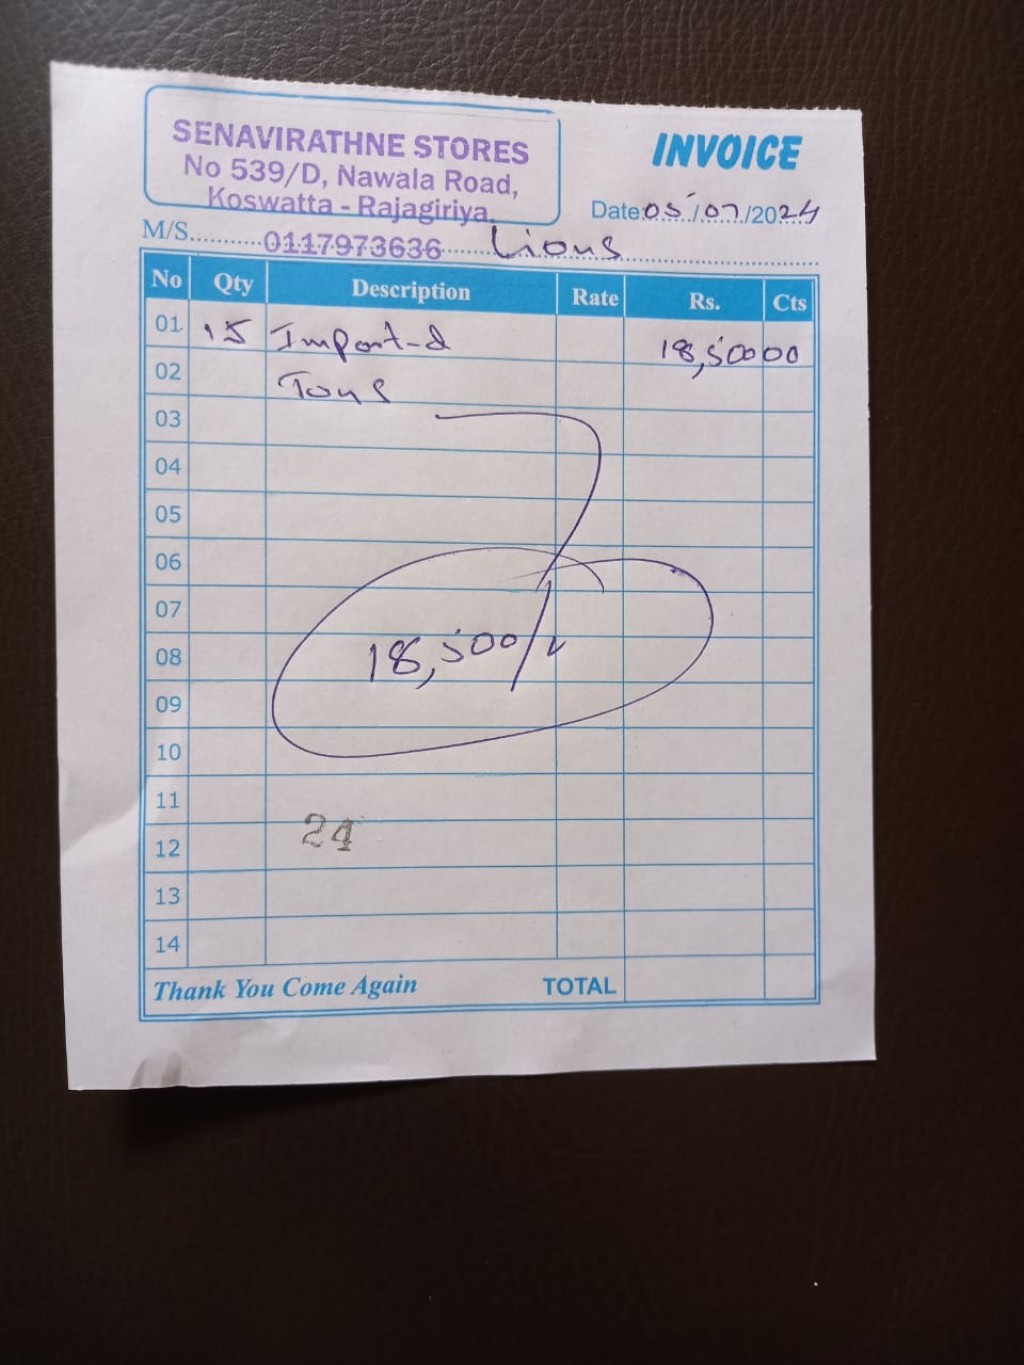 SENAVIRATHNE STORES
No 539/D, Nawala Road,
Koswatta - Rajagiriya.
0117973636
INVOICE
Date: 05/07/2024
M/S. Lions
No Qty Description Rate Rs. Cts
01 15 Import-d 18,500 00
02 Toys
03
04
05
06
07
08 18,500/
09
10
11
24
12
13
14
Thank You Come Again TOTAL